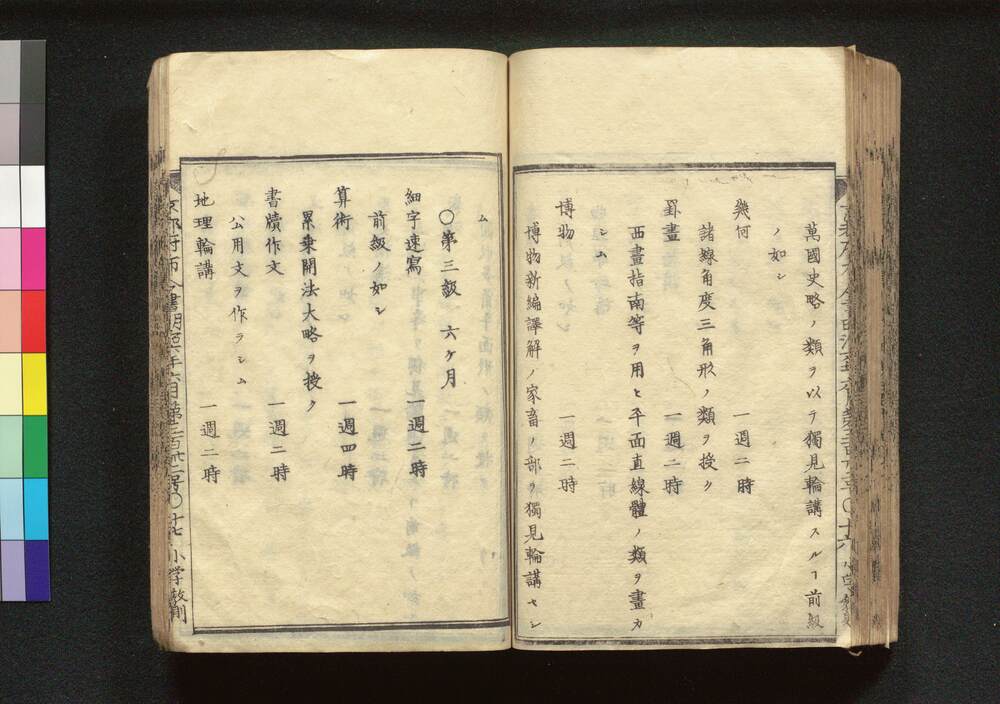 萬國史略ノ類ヲ以テ獨見輪講スルヿ前級
ノ如シ
幾何 一週二時
諸線角度三角形ノ類ヲ授ク
罫畫 一週二時
西畫指南等ヲ用ヒ平面直線體ノ類ヲ畫カ
シム
博物 一週二時
博物新編譯解ノ家畜ノ部ヲ獨見輪講セシ
ム
〇第三級 六ケ月
細字速寫 一週二時
前級ノ如シ
算術 一週四時
累乗開法大略ヲ授ク
書牘作文 一週二時
公用文ヲ作ラシム
地理輪講 一週二時
京都府布令書明治六年六月第二百廿二号〇十七 小学教則